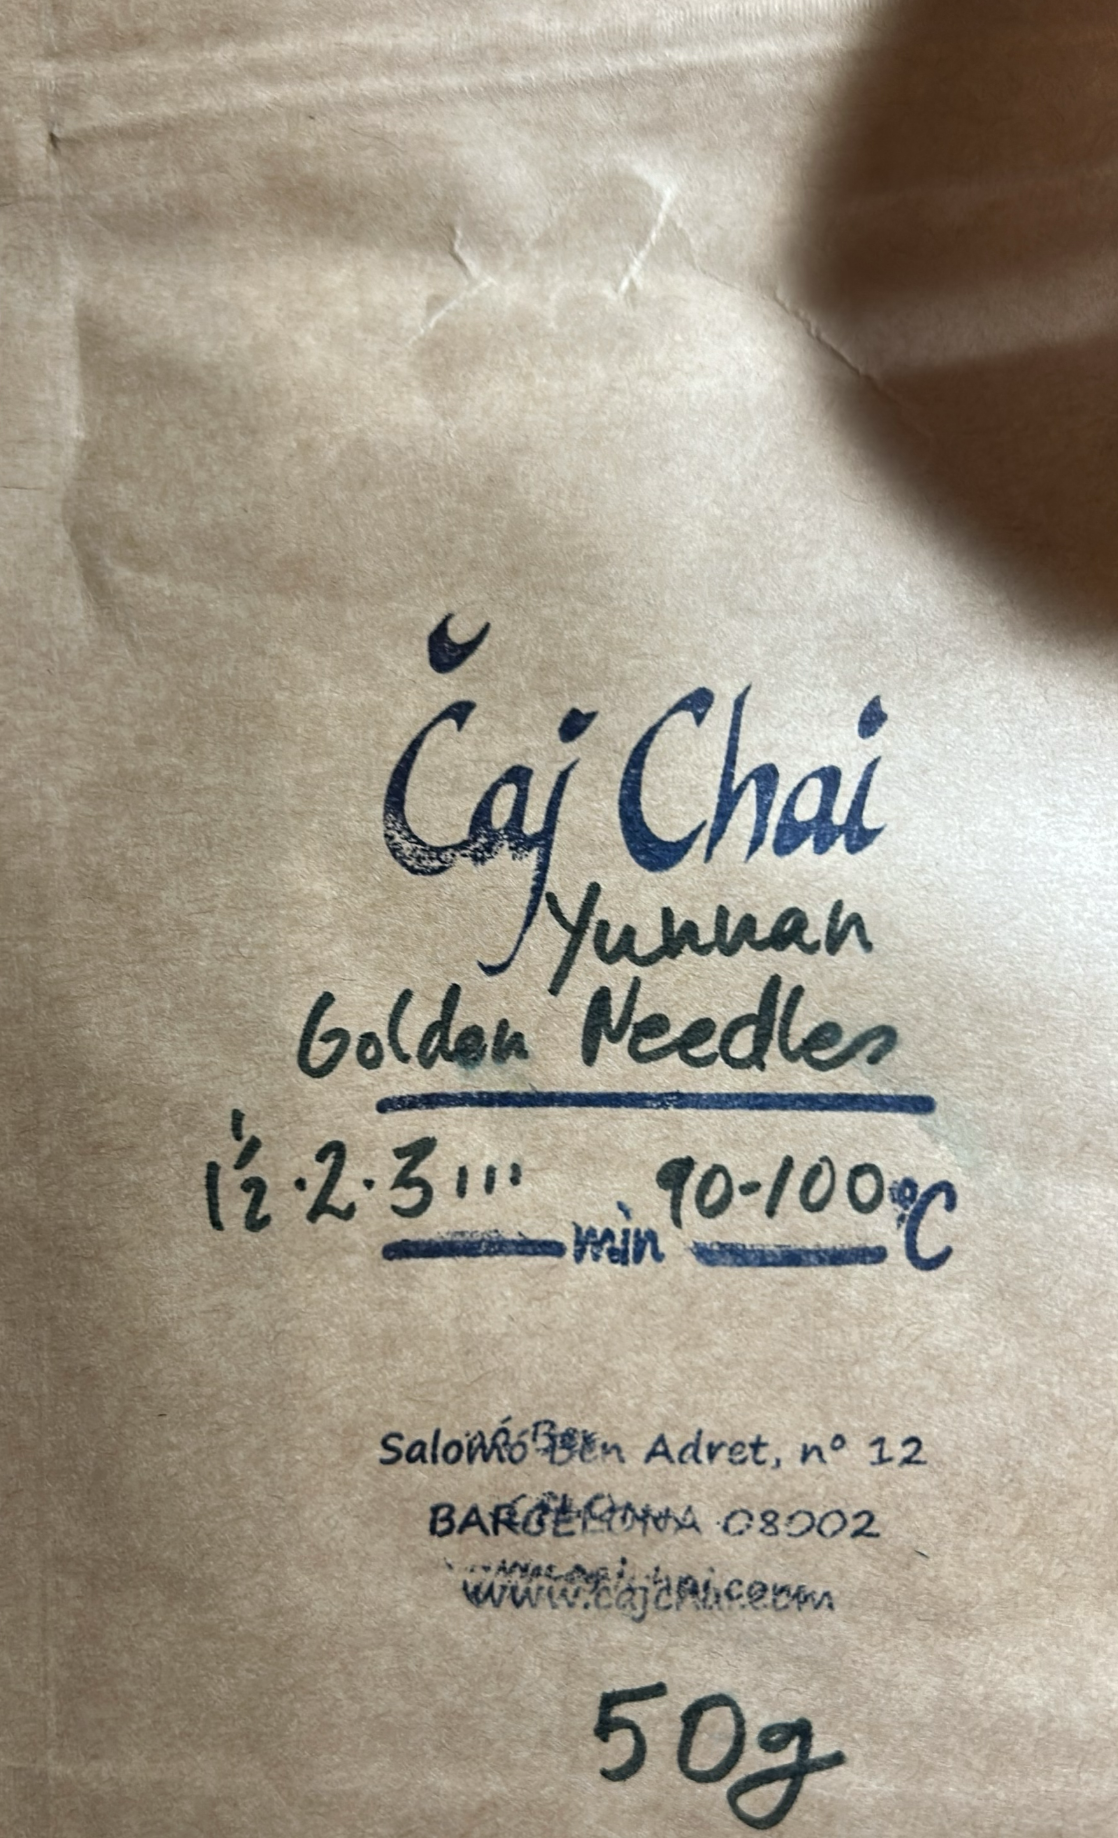 Čaj Chai
Yunnan
Golden Needles
1½·2·3... min 90-100°C
Salomó Ben Adret, nº 12
BARCELONA 08002
www.cajchai.com
50g